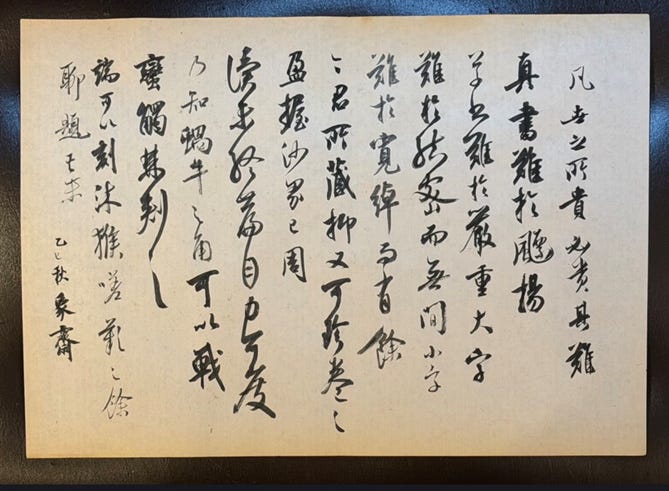 凡世之所貴必貴其難
真書難於飄揚
草書難於嚴重大字
難於結密而無間小字
難於寬綽而有餘
今君所藏抑又可珍卷之
盈握沙界已周
讀未終篇目力可廢
乃知蝸牛之角可以戰
蠻觸棘刺之
端可以刻沐猴嗟歎之餘
聊題其末
乙巳秋 象齋